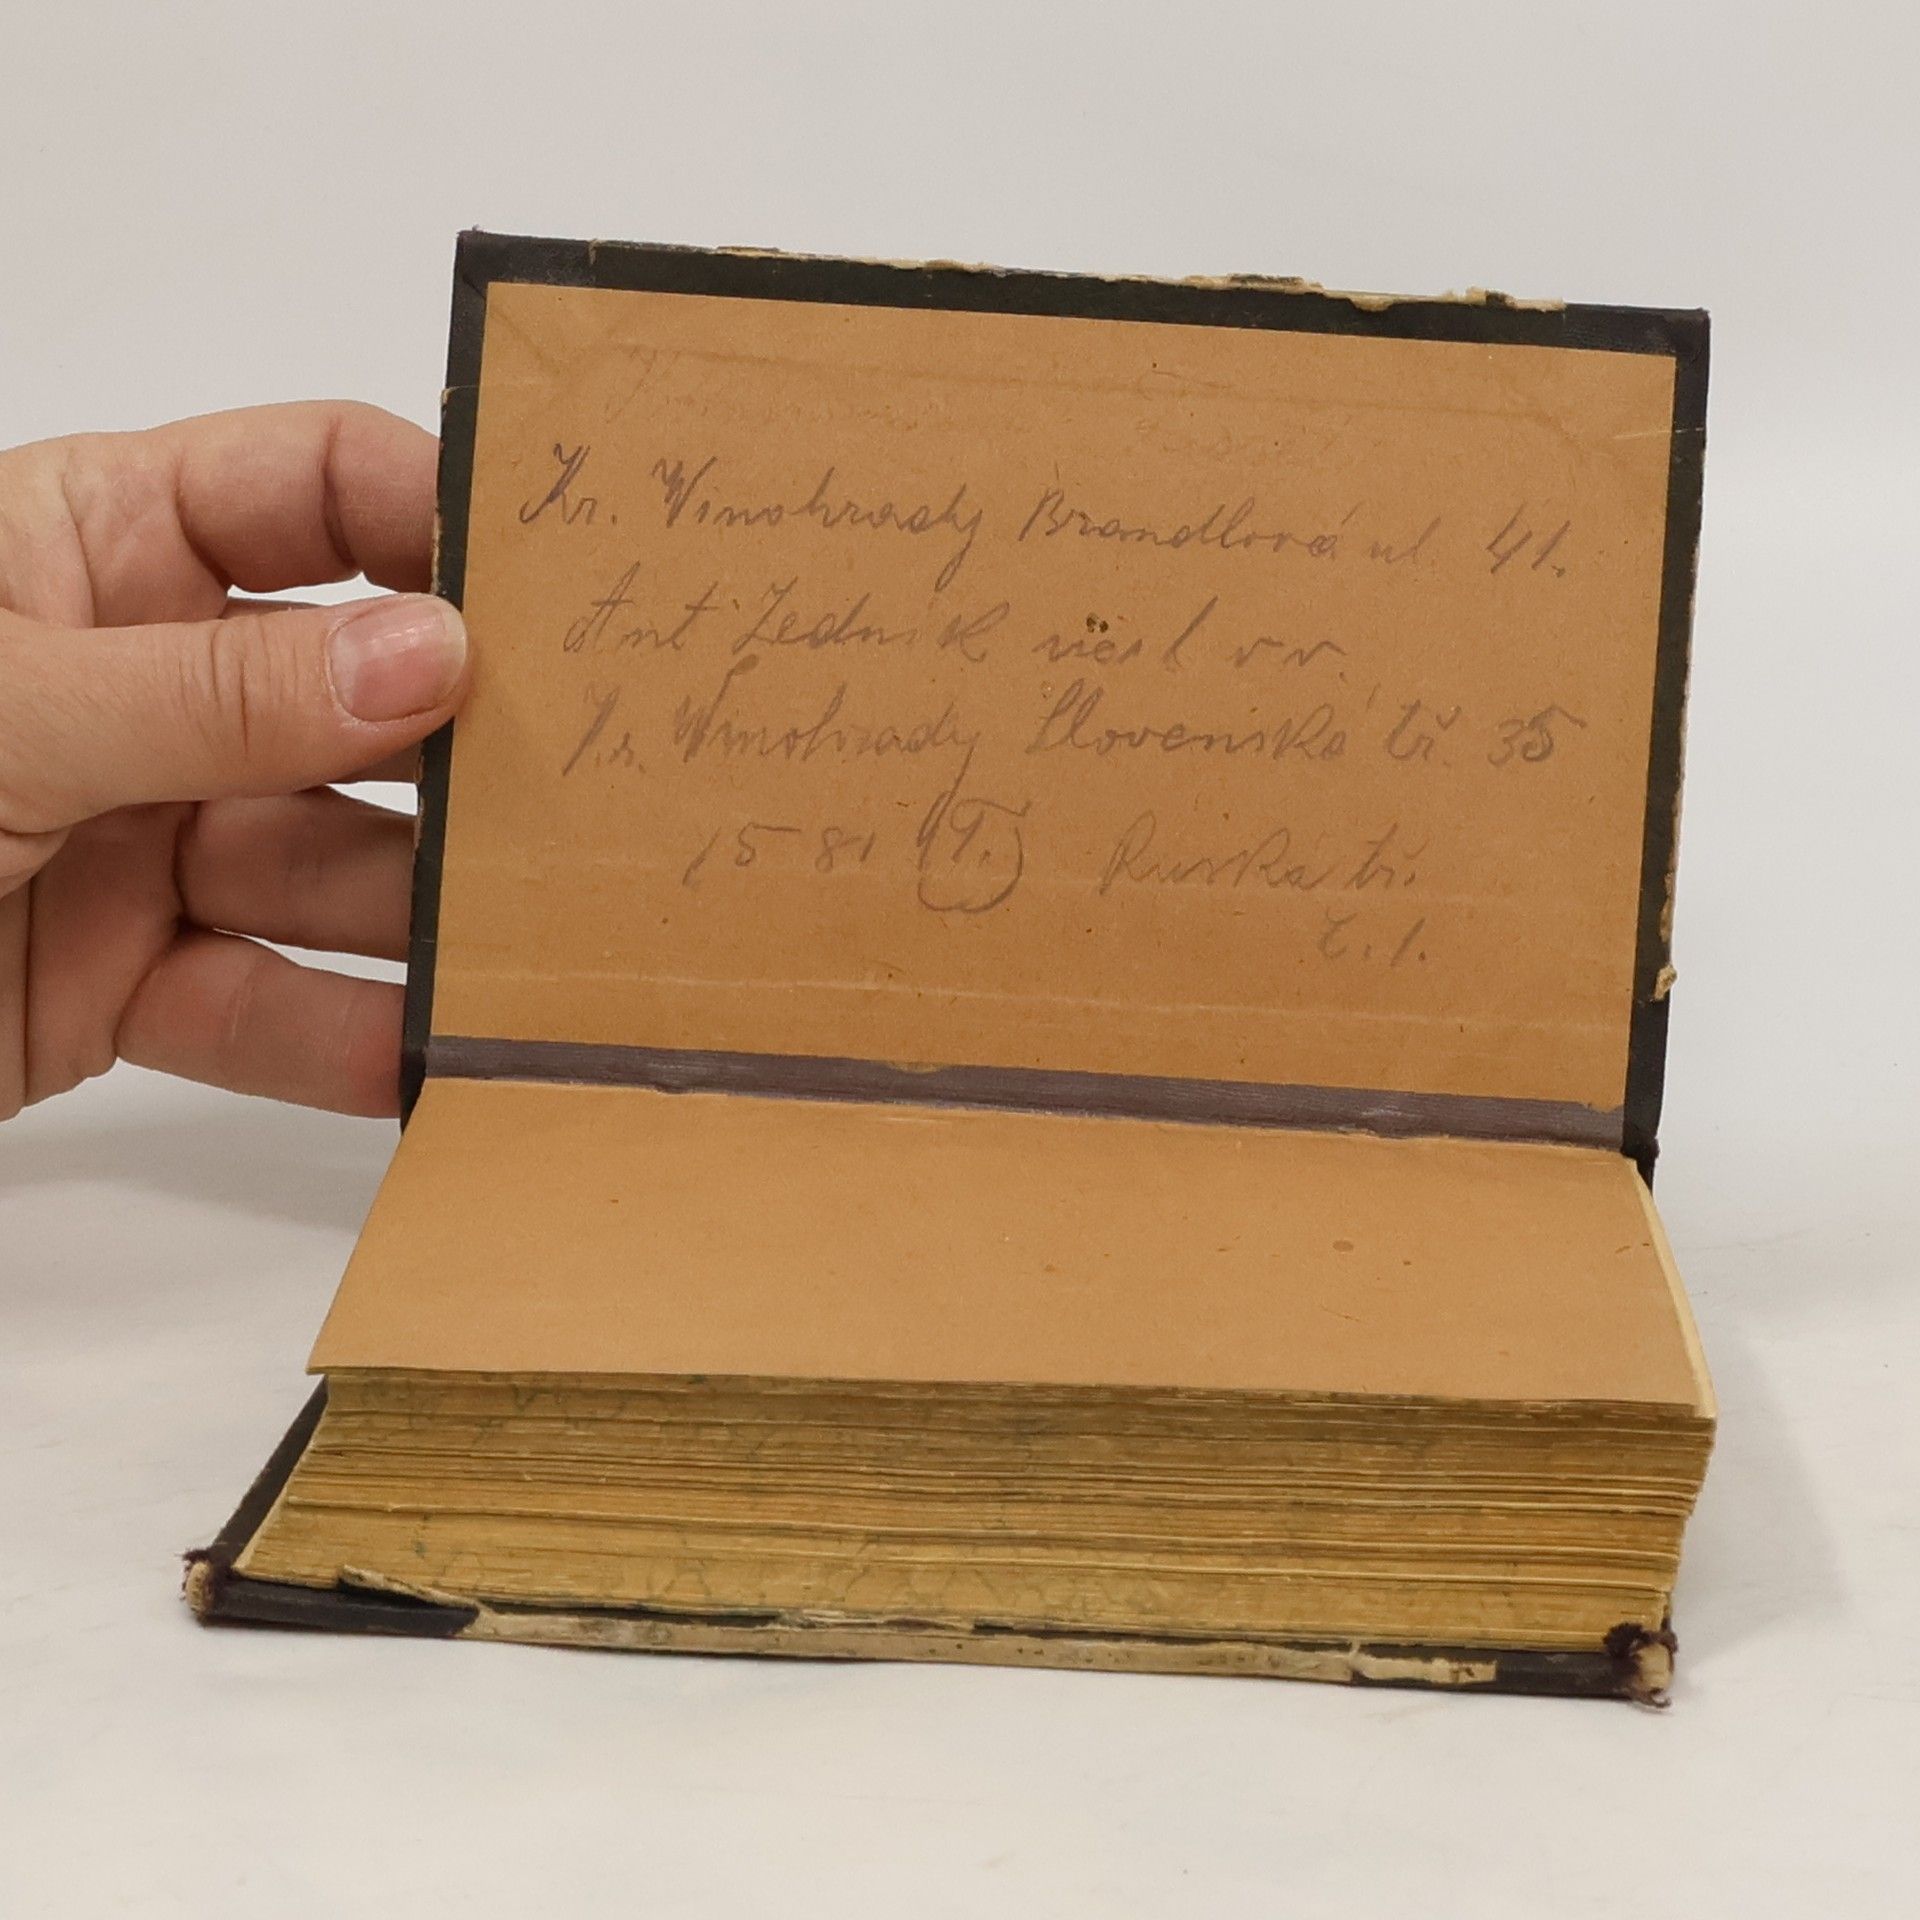 Kr. Winohrady Brandlová ul. 41.
Ant Zednik v v.
Kr. Winohrady Slovenská tř. 35
1581 (T.) Ruská tř.
č. 1.